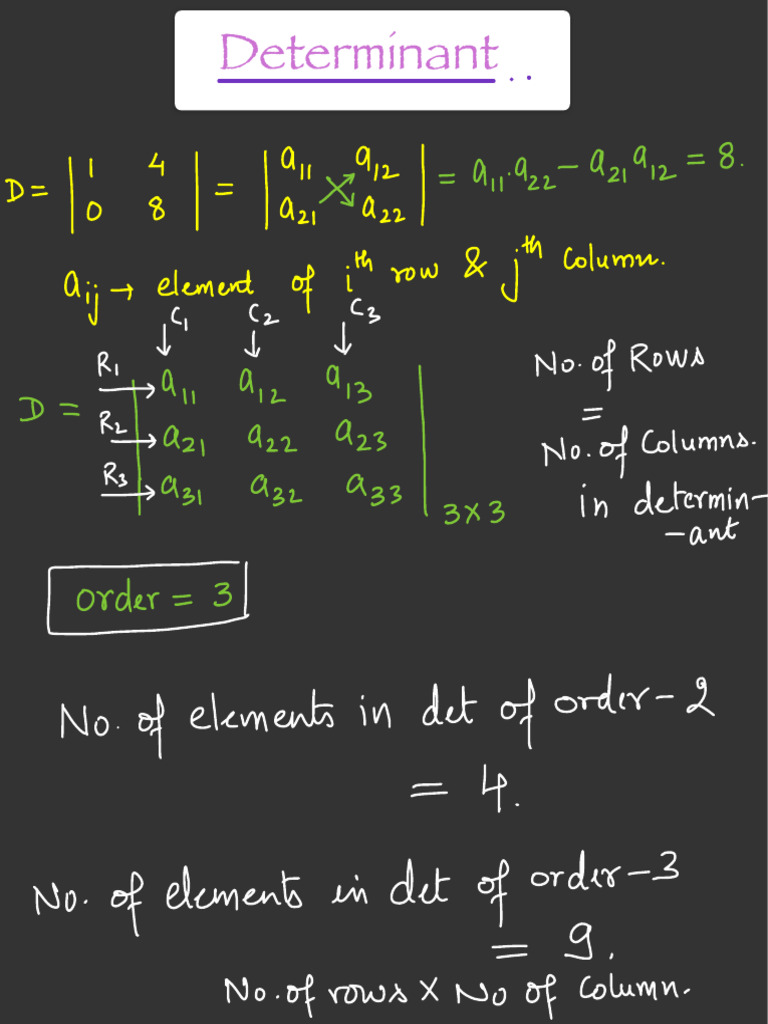 Determinant ..
D = | 1 4 | = | a11 a12 | = a11.a22 - a21 a12 = 8.
| 0 8 | | a21 a22 |
aij → element of ith row & jth column.
C1 C2 C3
R1 → a11 a12 a13
D = R2 → a21 a22 a23
R3 → a31 a32 a33
3×3
No. of Rows
=
No. of Columns.
in determin-
-ant
order = 3
No. of elements in det of order-2
= 4.
No. of elements in det of order-3
= 9.
No. of rows × No of column.